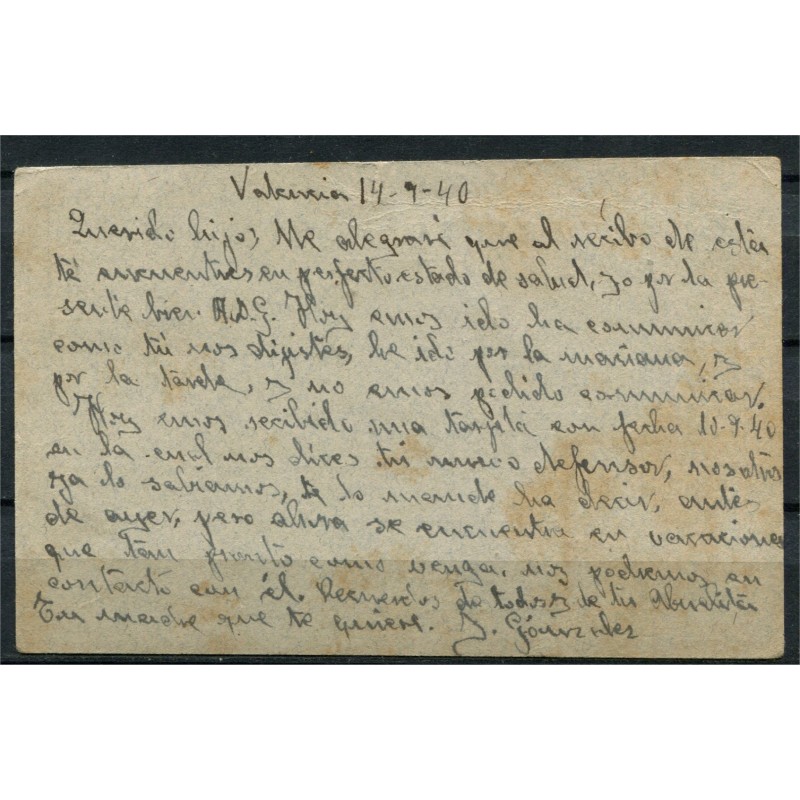 Valencia 14-9-40
Querido hijo; Me alegraré que al recibo de esta
té encuentres en perfecto estado de salud, yo por la pre-
sente bien A.D.G. Hoy emos ido ha comunicar
como tú nos dijistes, he ido por la mañana, y
por la tarde, y no emos podido comunicar.
Hoy emos recibido una tarjeta con fecha 10-9-40
en la cual nos dices tu nuevo defensor, nosotros
ya lo sabiamos, te lo mande ha decir, antes
de ayer, pero ahora se encuentra en vacaciones
que tan pronto como venga, nos podremos en
contacto con él. Recuerdos de todos y de tu Abuelita
Tu madre que te quiere. J. Gónzalez